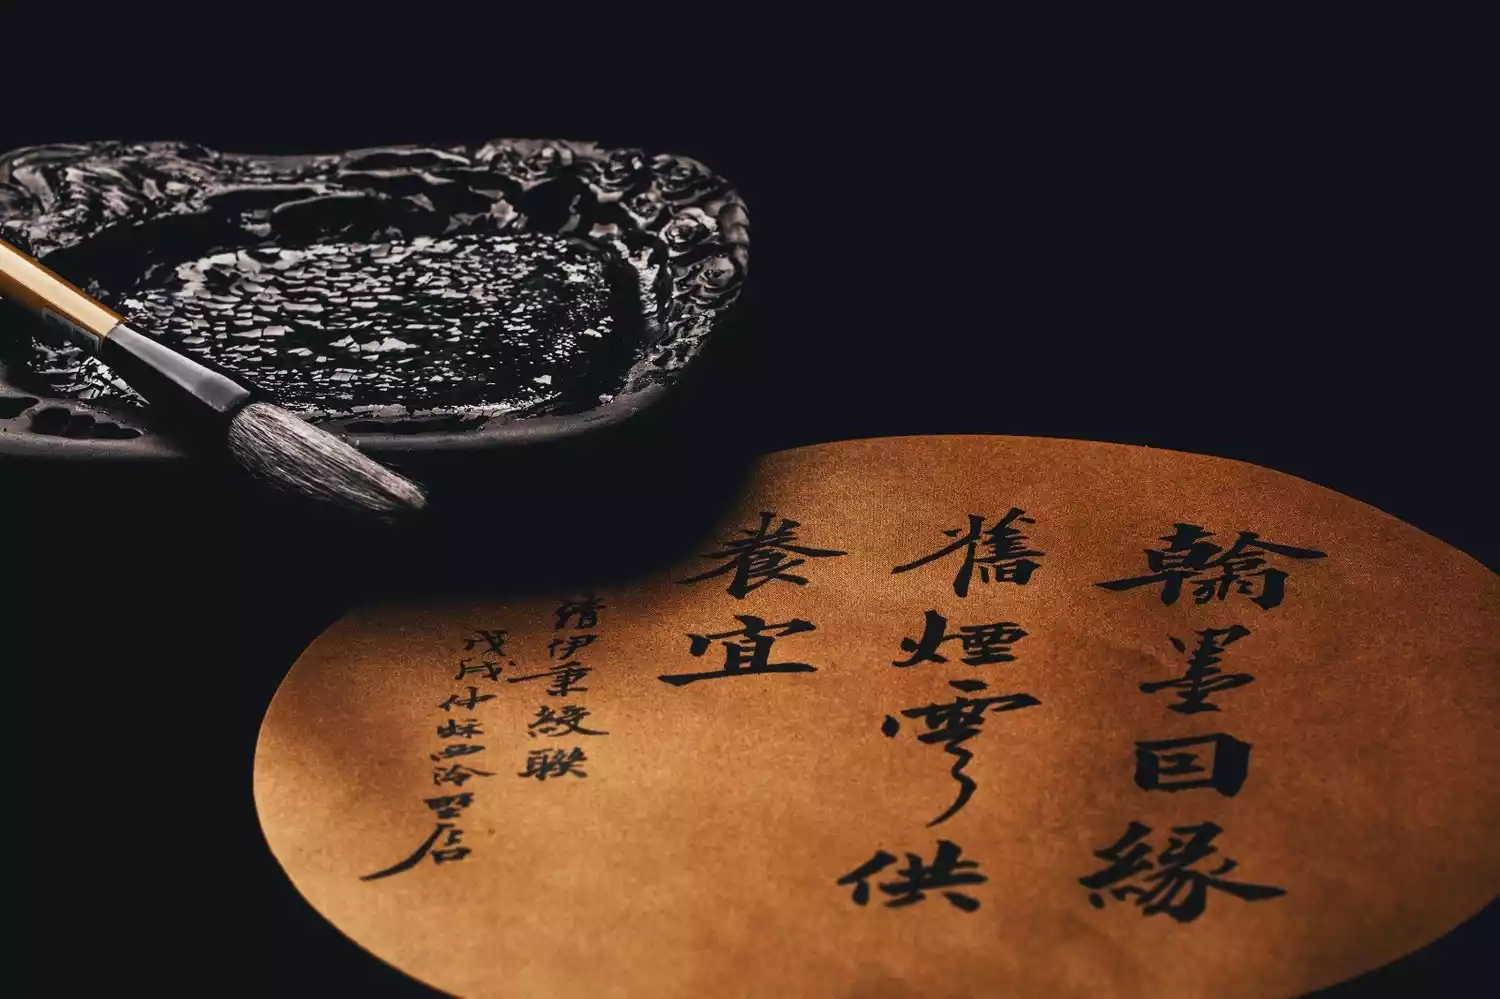 翰墨回緣
舊煙雲供
養宜
清伊秉綬聯
戊戌仲秋西泠野店